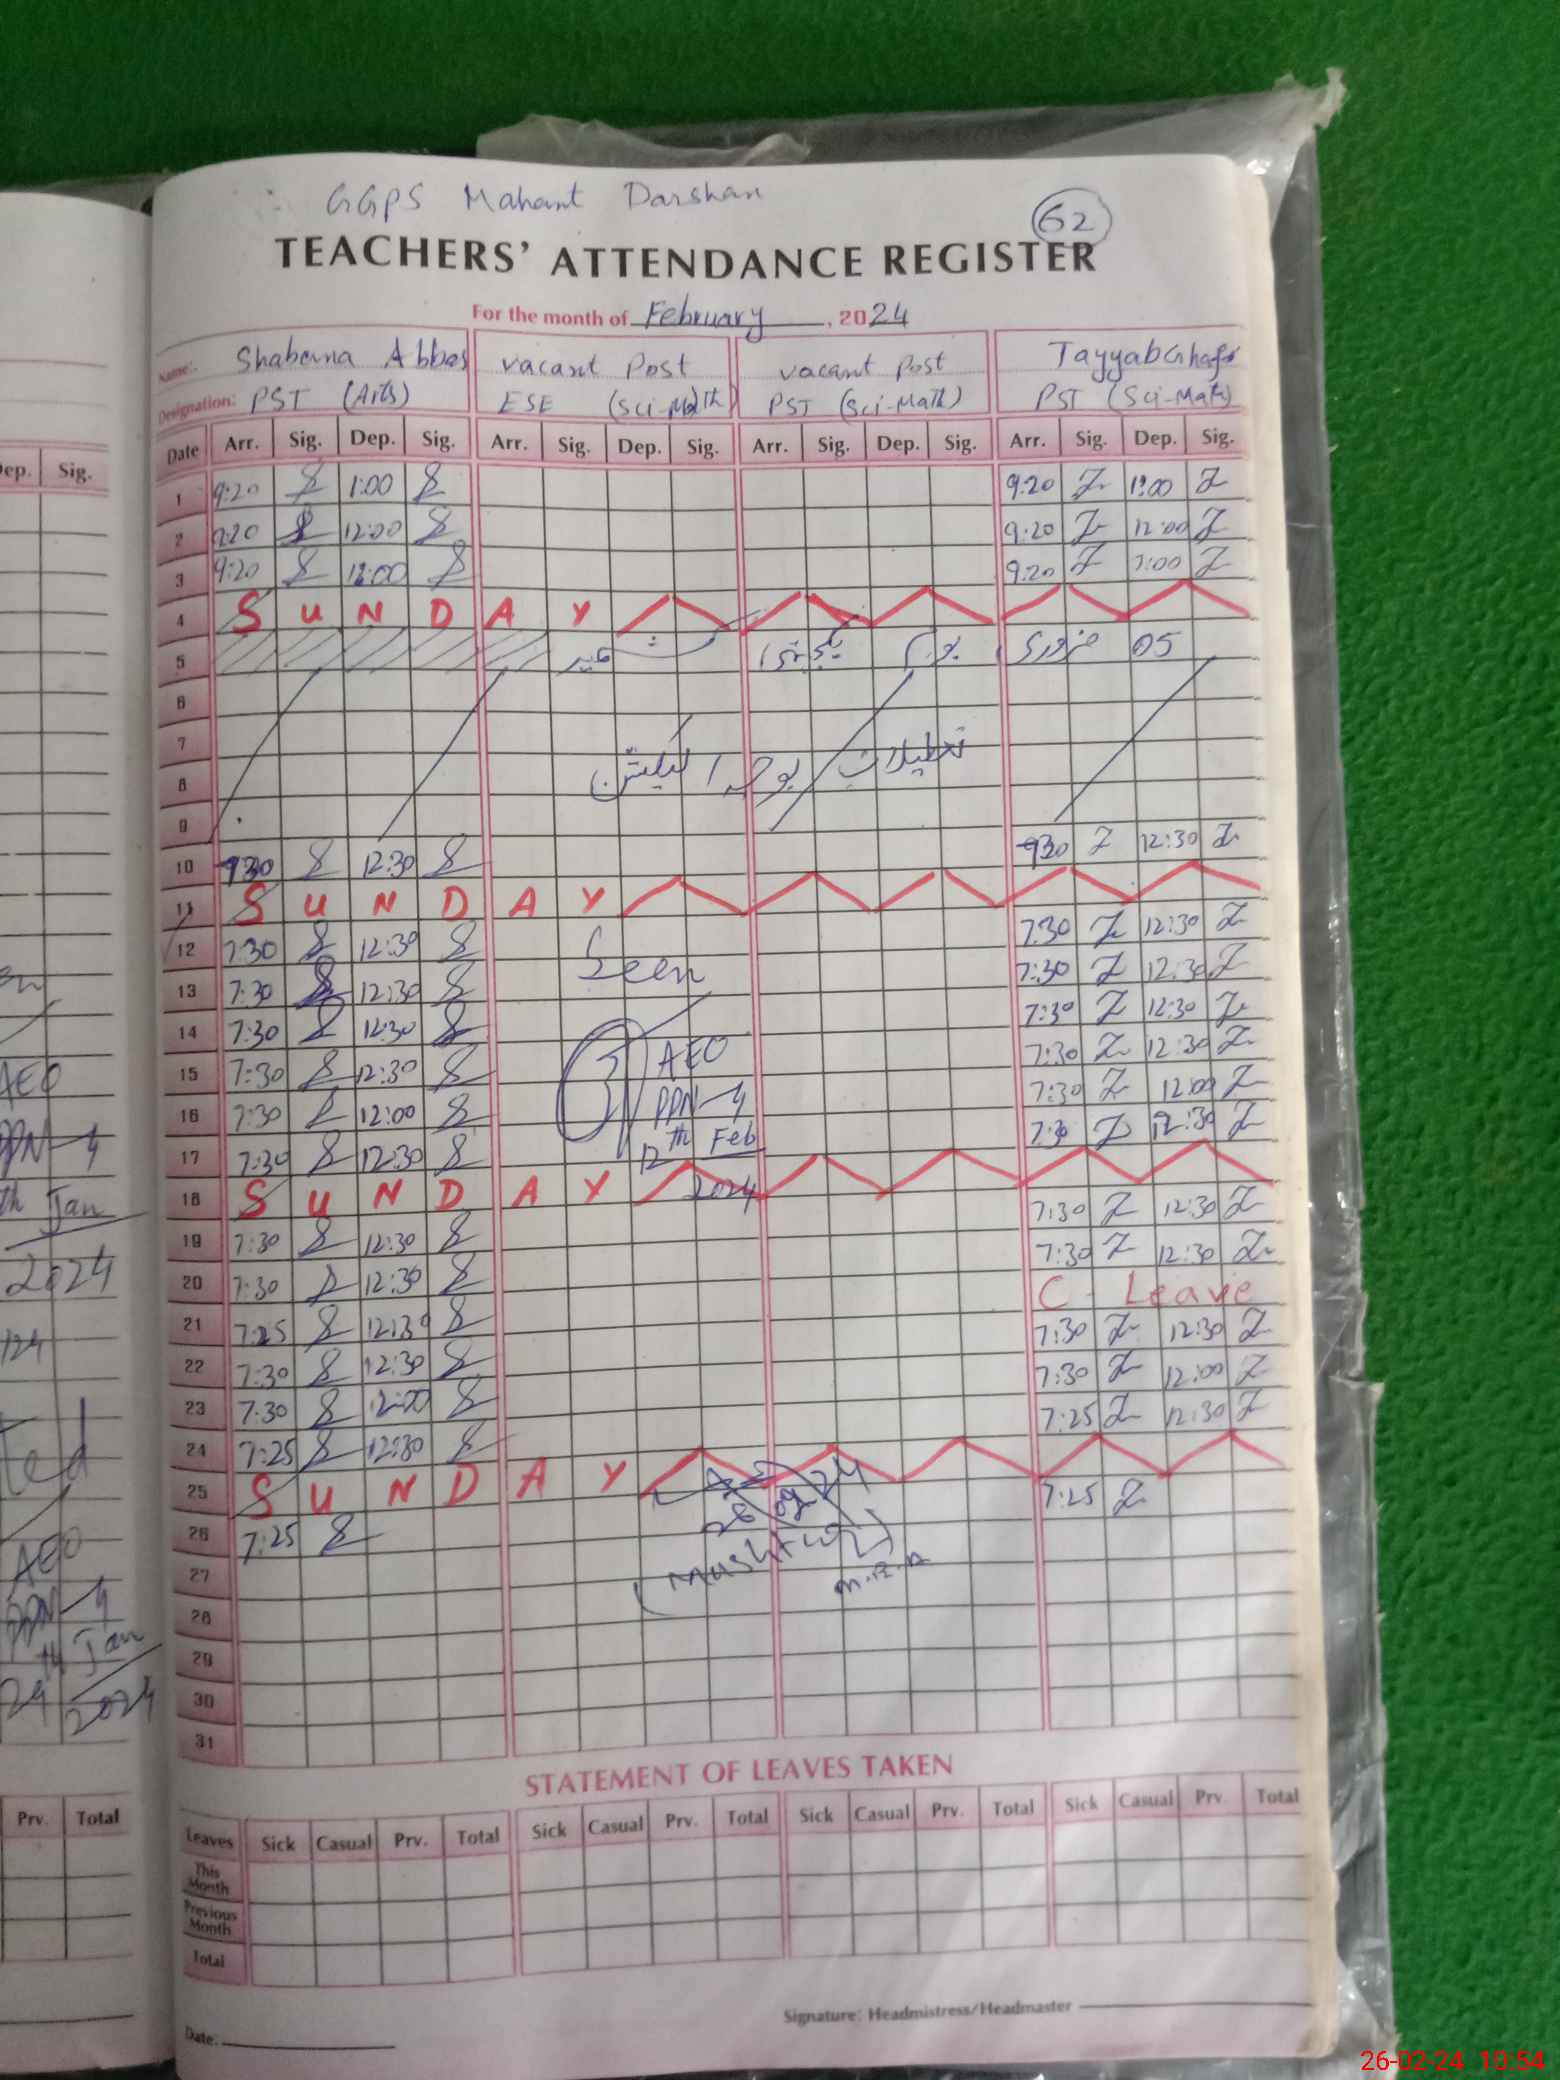 GGPS Mahant Darshan
62
TEACHERS' ATTENDANCE REGISTER
For the month of February, 2024
Name: Shabana Abbas vacant Post vacant Post Tayyab Ghafar
Designation: PST (Arts) ESE (Sci-Math) PST (Sci-Math) PST (Sci-Math)
Date Arr. Sig. Dep. Sig. Arr. Sig. Dep. Sig. Arr. Sig. Dep. Sig. Arr. Sig. Dep. Sig.
1 9:20 1:00 9:20 1:00
2 9:20 12:00 9:20 12:00
3 9:20 1:00 9:20 1:00
4 S U N D A Y
5 05 فروری
6
7 تعطیلات بوجہ الیکشن
8
9
10 930 12:30 930 12:30
11 S U N D A Y
12 7:30 12:30 7:30 12:30
13 7:30 12:30 7:30 12:30
14 7:30 12:30 7:30 12:30
15 7:30 12:30 7:30 12:30
16 7:30 12:00 7:30 12:00
17 7:30 12:30 7:30 12:30
18 S U N D A Y
19 7:30 12:30 7:30 12:30
20 7:30 12:30 7:30 12:30
21 7:25 12:30 C- Leave
22 7:30 12:30 7:30 12:30
23 7:30 12:00 7:30 12:00
24 7:25 12:30 7:25 12:30
25 S U N D A Y
26 7:25 7:25
27
28
29
30
31
Seen
AEO
PPN-4
12th Feb
2024
(Mushtaq)
STATEMENT OF LEAVES TAKEN
Leaves Sick Casual Prv. Total Sick Casual Prv. Total Sick Casual Prv. Total Sick Casual Prv. Total
This Month
Previous Month
Total
Signature: Headmistress/Headmaster
Date:
Dep. Sig.
AEO
PPN-4
th Jan
2024
AEO
PPN-4
th Jan
24 2024
Prv. Total
26-02-24 10:54